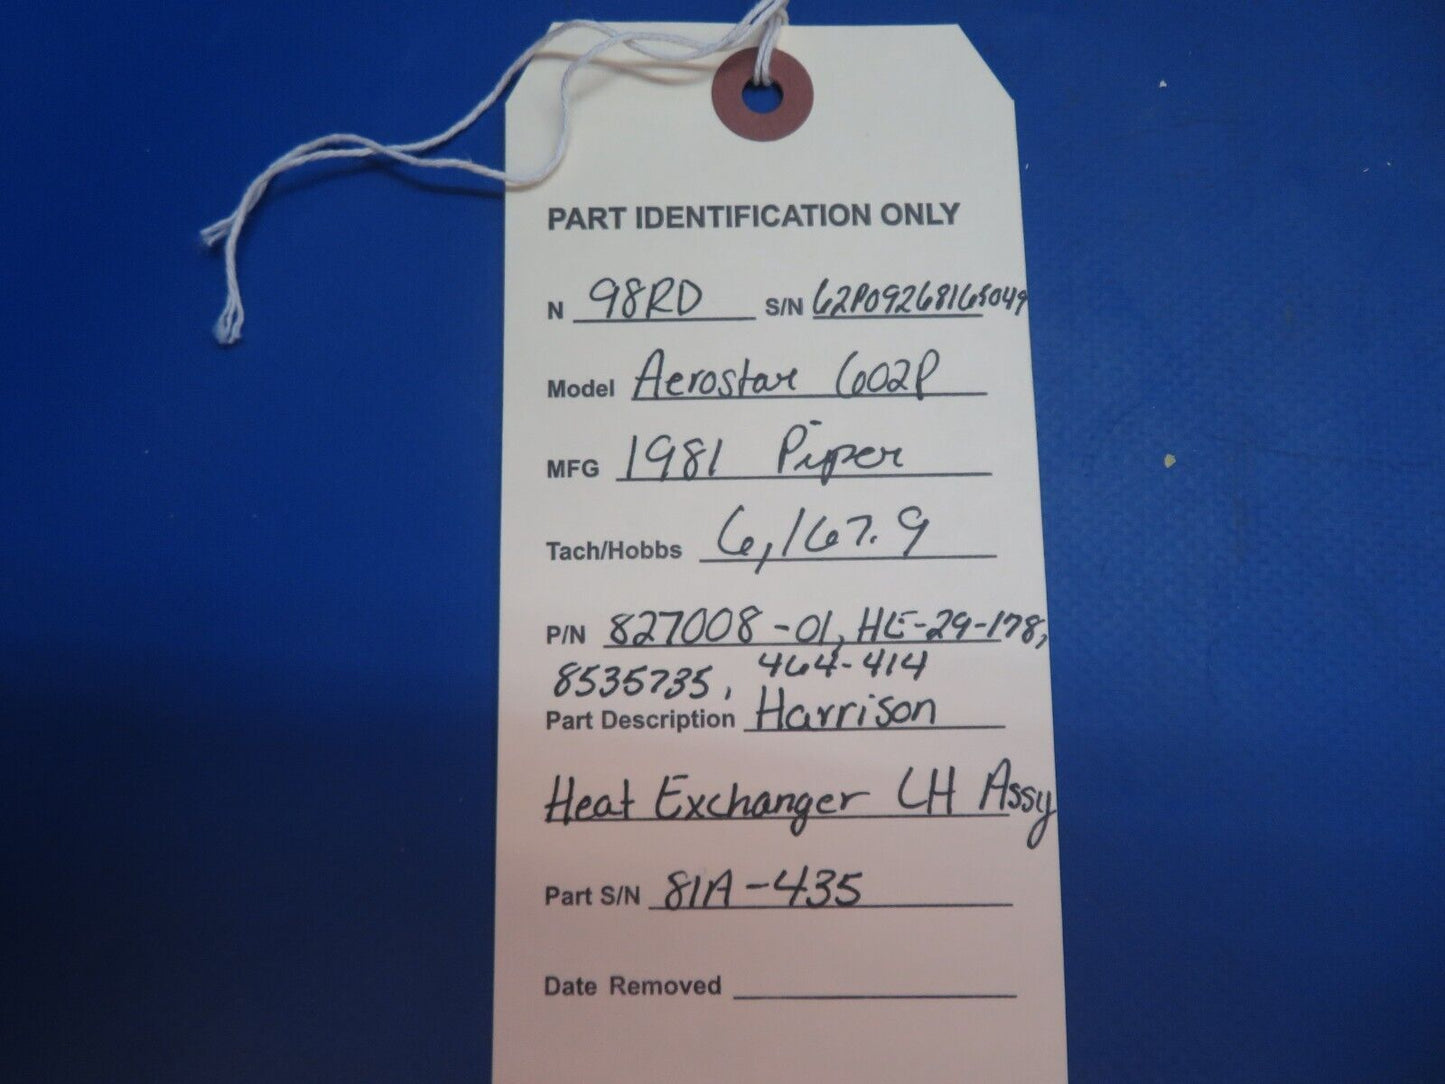 PART IDENTIFICATION ONLY
N 98RD S/N 62P09268165049
Model Aerostar 602P
MFG 1981 Piper
Tach/Hobbs 6,167.9
P/N 827008-01, HE-29-178,
8535735, 464-414
Part Description Harrison
Heat Exchanger LH Assy
Part S/N 81A-435
Date Removed